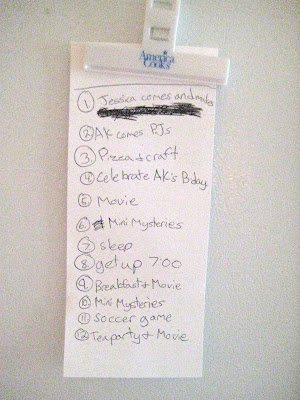 America
Cooks
1 Jessica comes and makes
2 AK comes PJs
3 Pizza & craft
4 Celebrate AK's Bday
5 Movie
6 Mini Mysteries
7 sleep
8 get up 7:00
9 Breakfast & Movie
10 Mini Mysteries
11 Soccer game
12 Teaparty & Movie